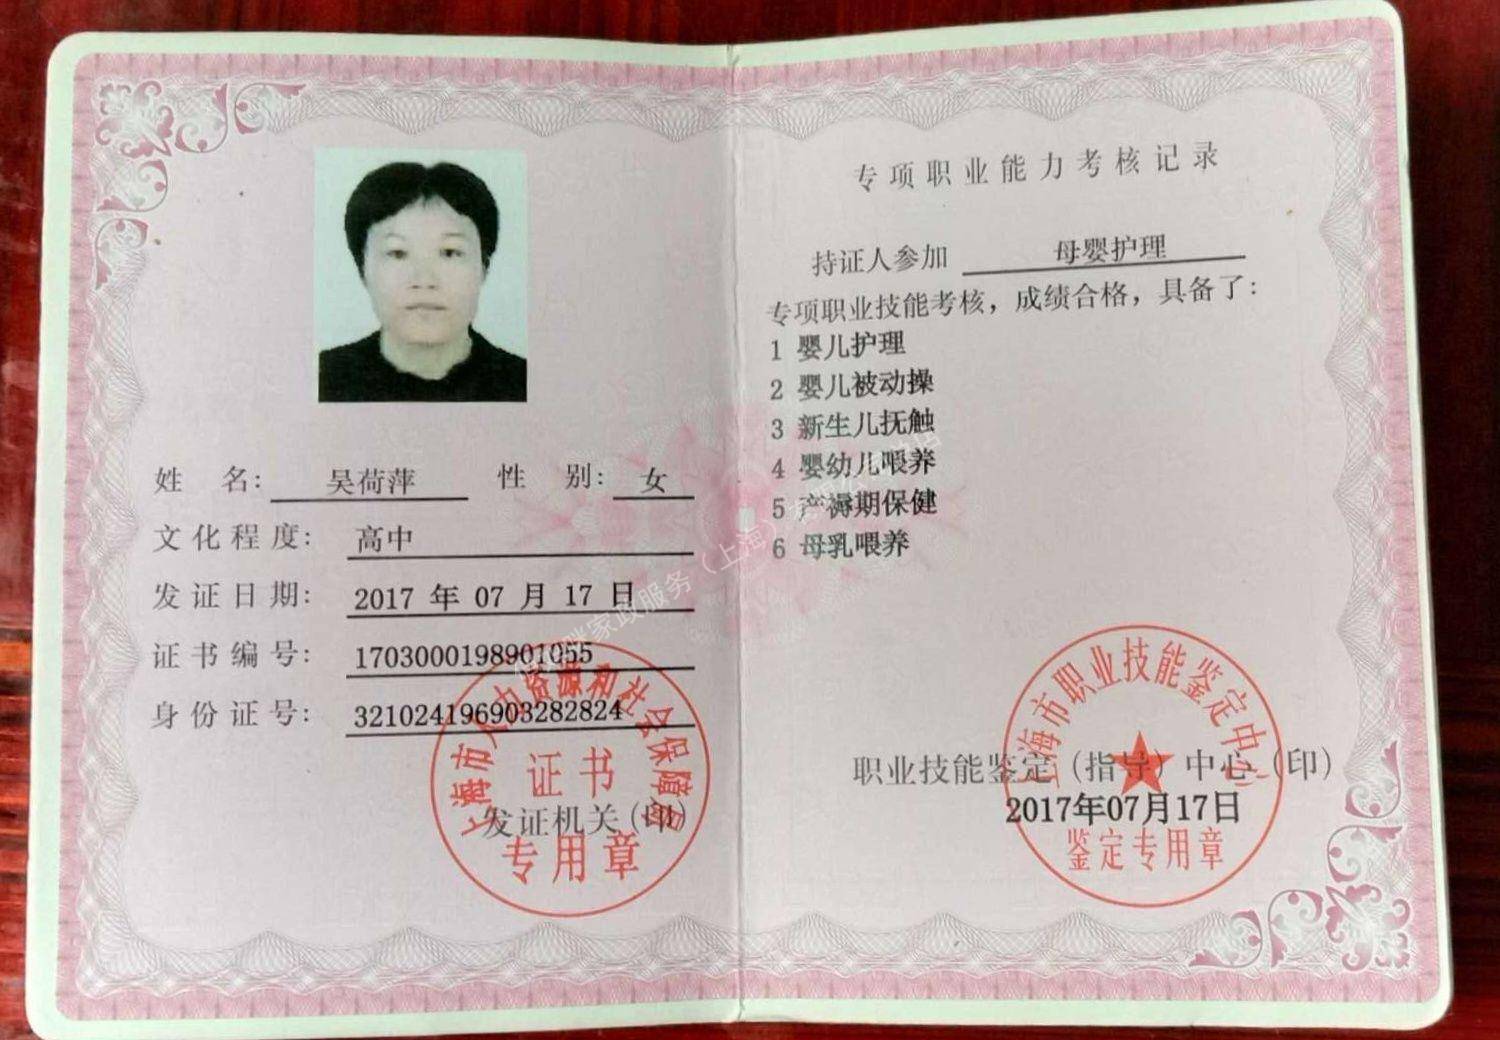 姓 名: 吴荷萍 性 别: 女
文化程度: 高中
发证日期: 2017 年 07 月 17 日
证书编号: 1703000198901055
身份证号: 321024196903282824
上海市人力资源和社会保障局
证书
发证机关(印)
专用章
专项职业能力考核记录
持证人参加 母婴护理
专项职业技能考核，成绩合格，具备了:
1 婴儿护理
2 婴儿被动操
3 新生儿抚触
4 婴幼儿喂养
5 产褥期保健
6 母乳喂养
上海市职业技能鉴定中心
职业技能鉴定(指导)中心(印)
2017年07月17日
鉴定专用章
家政服务（上海）